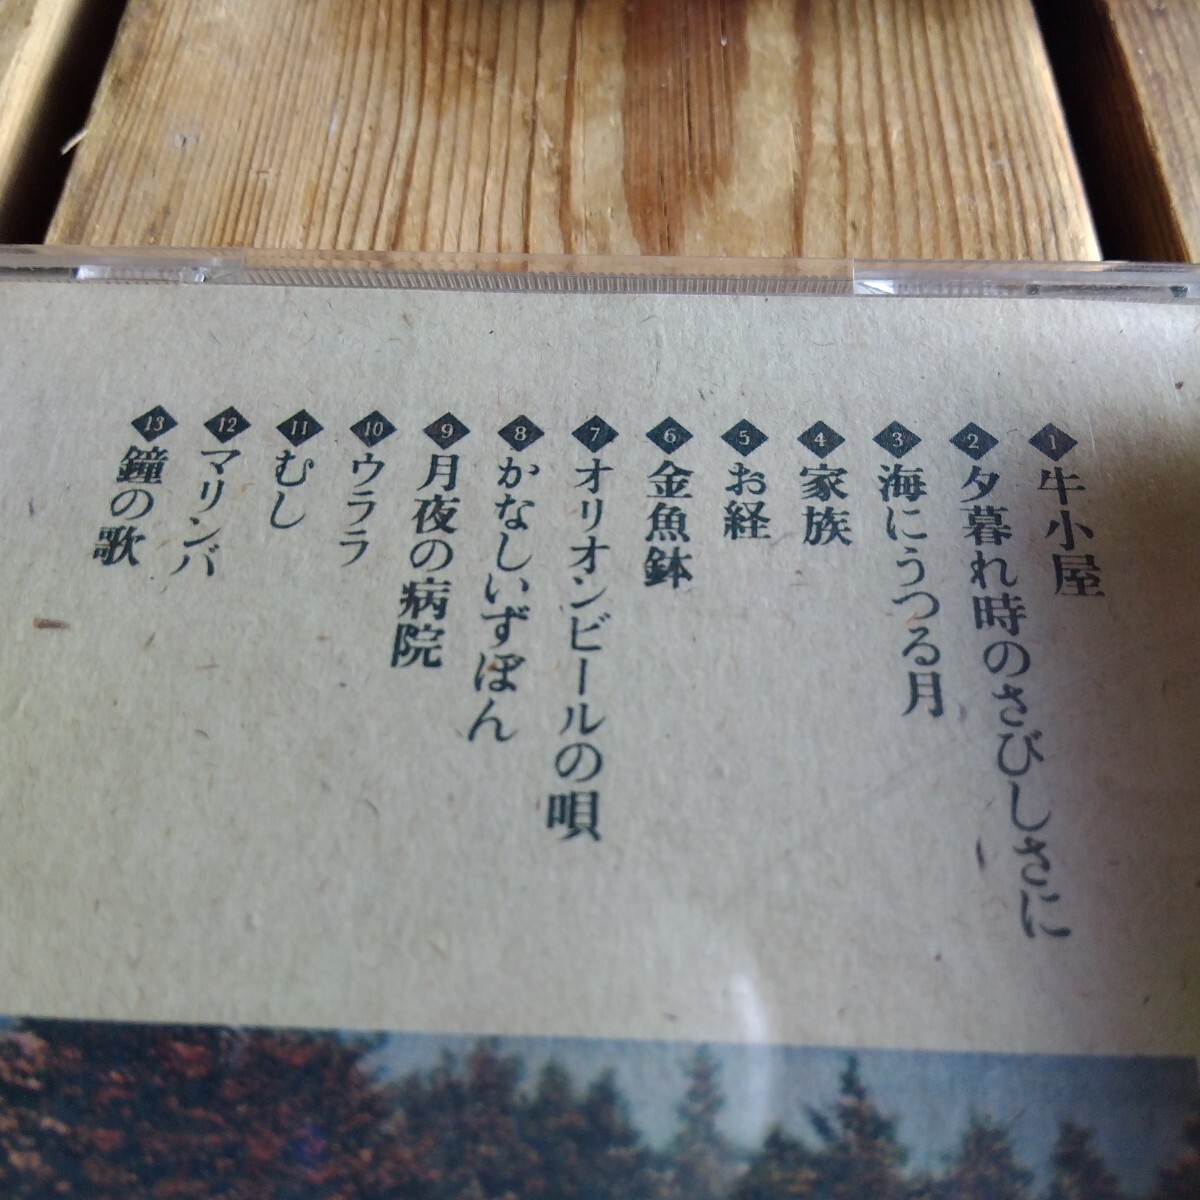 1 牛小屋
2 夕暮れ時のさびしさに
3 海にうつる月
4 家族
5 お経
6 金魚鉢
7 オリオンビールの唄
8 かなしいずぼん
9 月夜の病院
10 ウララ
11 むし
12 マリンバ
13 鐘の歌